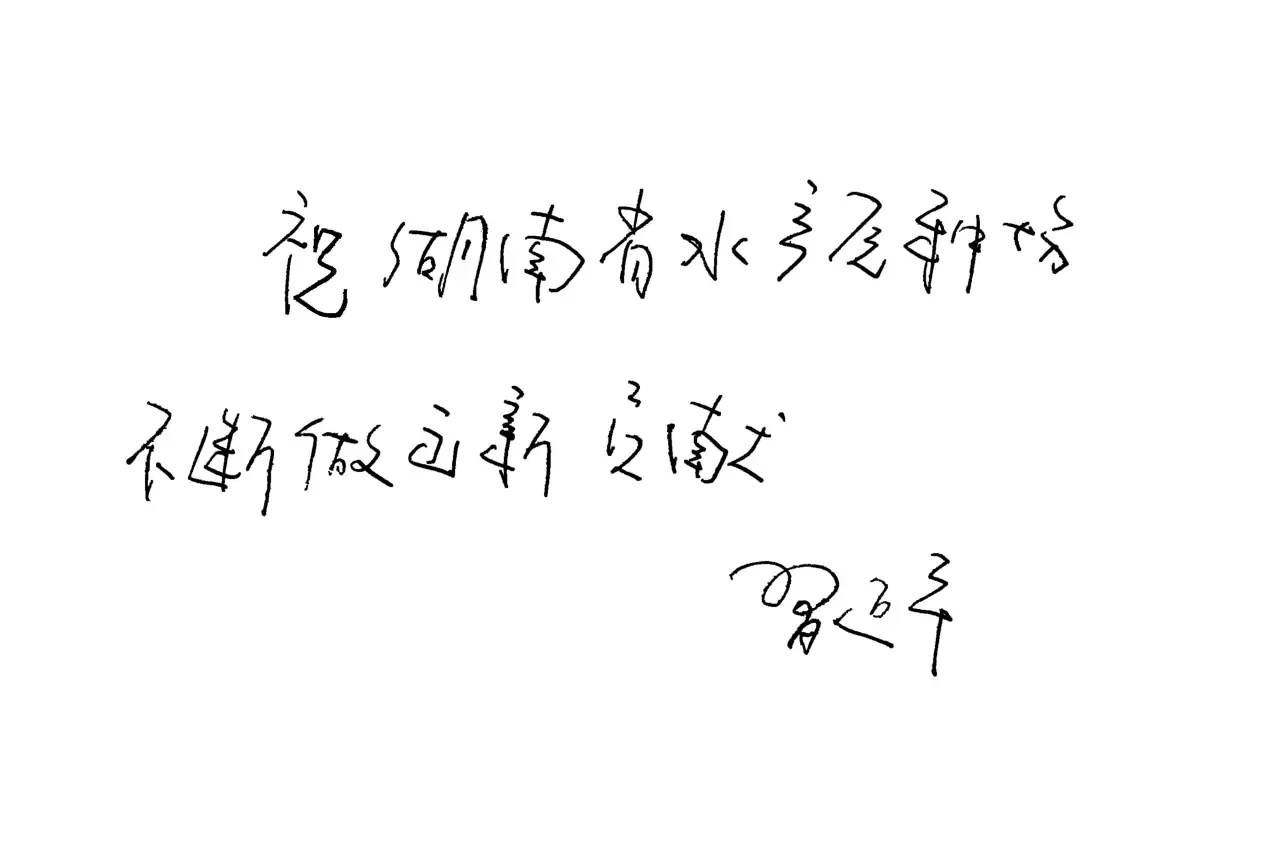 祝湖南省水产原种场
不断做出新贡献
习近平